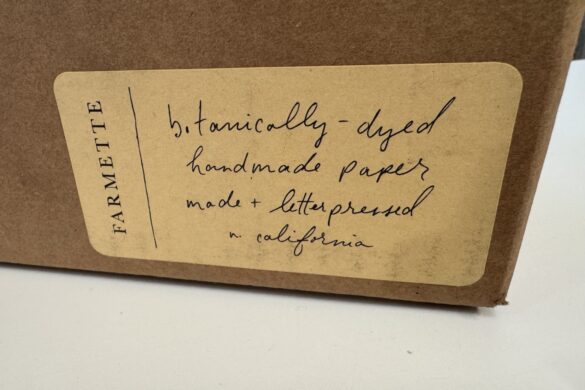 FARMETTE
botanically-dyed
handmade paper
made + letterpressed
n. california